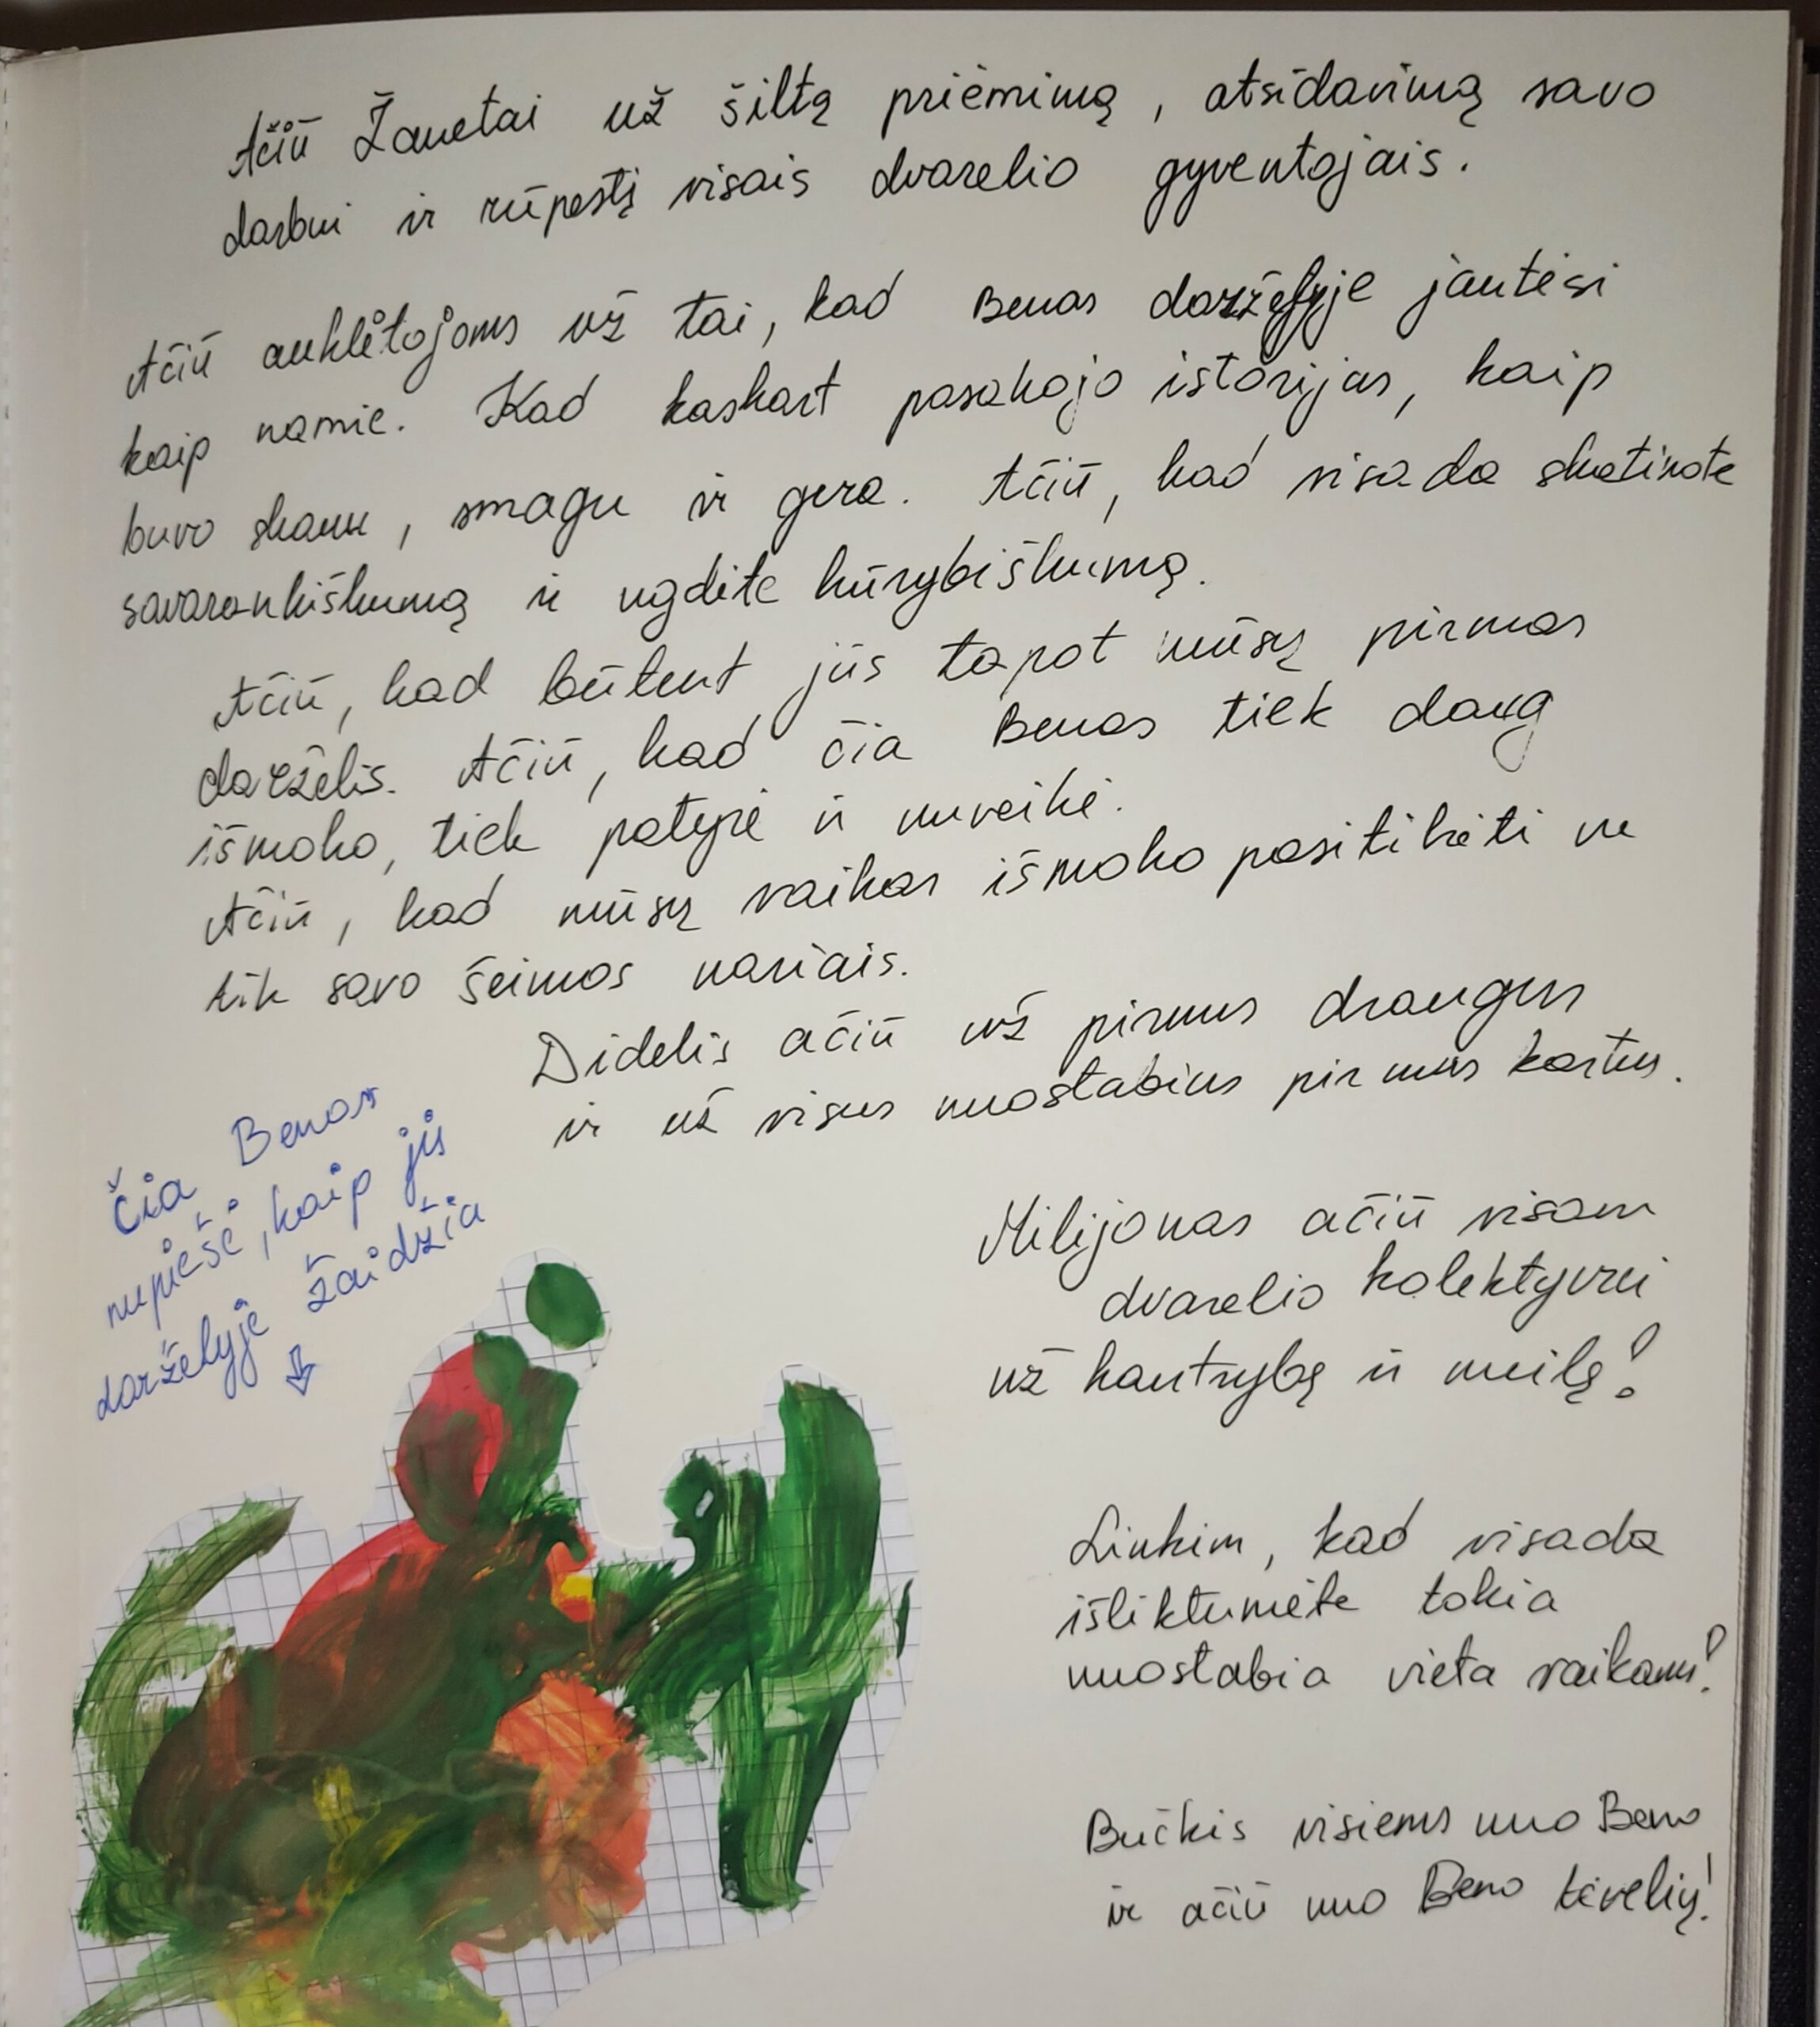 Ačiū Žanetai už šiltą priėmimą, atsidavimą savo
darbui ir rūpestį visais dvarelio gyventojais.
Ačiū auklėtojoms už tai, kad Benas darželyje jautėsi
kaip namie. Kad kaskart pasakojo istorijas, kaip
buvo skanu, smagu ir gera. Ačiū, kad visada skatinote
savarankiškumą ir ugdėte kūrybiškumą.
Ačiū, kad būtent jūs tapot mūsų pirmas
darželis. Ačiū, kad čia Benas tiek daug
išmoko, tiek patyrė ir nuveikė.
Ačiū, kad mūsų vaikas išmoko pasitikėti ne
tik savo šeimos nariais.
Didelis ačiū už pirmus draugus
ir už visus nuostabius pirmus kartus.
Čia Benas
nupiešė, kaip jis
darželyje žaidžia
Milijonas ačiū visam
dvarelio kolektyvui
už kantrybę ir meilę!
Linkim, kad visada
išliktumėte tokia
nuostabia vieta vaikams!
Bučkis visiems nuo Beno
ir ačiū nuo Beno tėvelių!